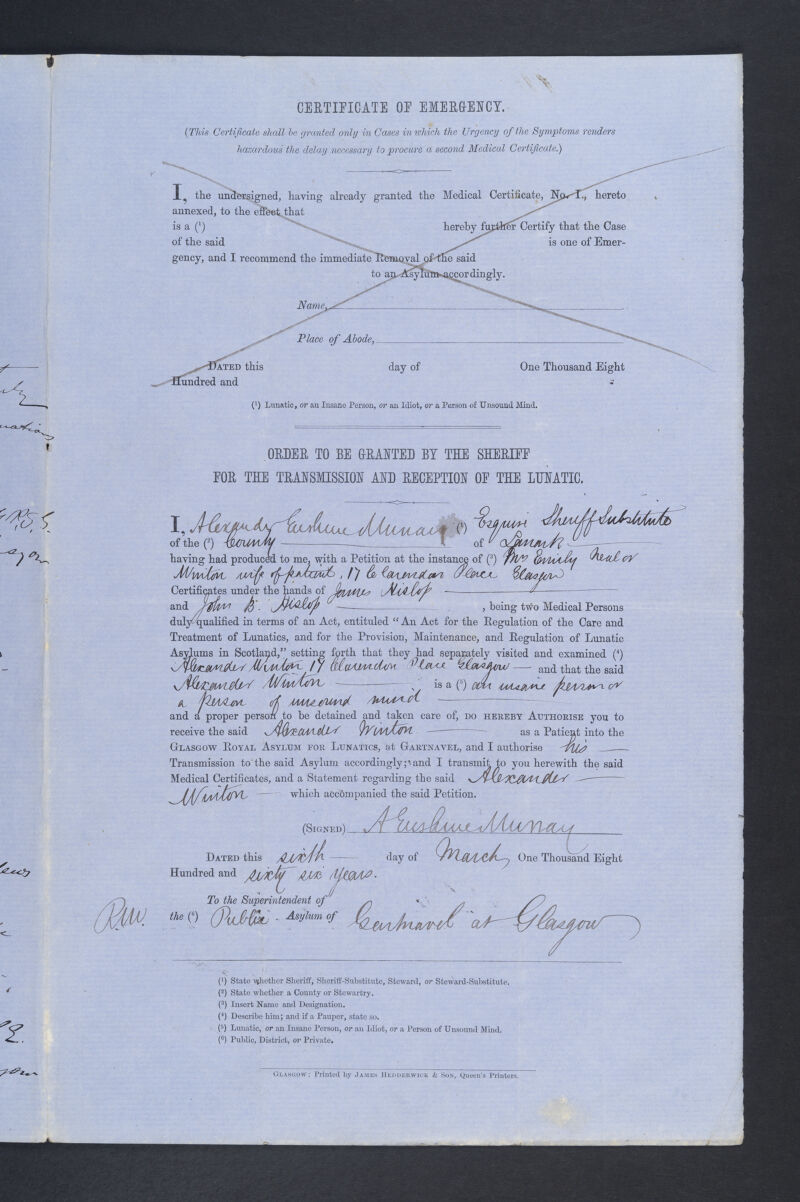 CERTIFICATE OF EMERGENCY.
(This Certificate shall be granted only in Cases in which the Urgency of the Symptoms renders
hazardous the delay necessary to procure a second Medical Certificate.)
I, the undersigned, having already granted the Medical Certificate, No. I., hereto
annexed, to the effect that
is a (¹) hereby further Certify that the Case
of the said is one of Emer-
gency, and I recommend the immediate Removal of the said
to an Asylum accordingly.
Name,
Place of Abode,
DATED this day of One Thousand Eight
Hundred and
(¹) Lunatic, or an Insane Person, or an Idiot, or a Person of Unsound Mind.
ORDER TO BE GRANTED BY THE SHERIFF
FOR THE TRANSMISSION AND RECEPTION OF THE LUNATIC.
I, Alexander Erskine Murray (¹) Esquire Sheriff Substitute
of the (²) County of Lanark
having had produced to me, with a Petition at the instance of (³) Mrs Emily Neal or
Winton wife of patient, 17 Clarendon Place Glasgow
Certificates under the hands of James Hislop
and John B. Hislop, being two Medical Persons
duly qualified in terms of an Act, entituled "An Act for the Regulation of the Care and
Treatment of Lunatics, and for the Provision, Maintenance, and Regulation of Lunatic
Asylums in Scotland," setting forth that they had separately visited and examined (⁴)
Alexander Winton 17 Clarendon Place Glasgow — and that the said
Alexander Winton is a (⁵) an insane person or
a person of unsound mind
and a proper person to be detained and taken care of, DO HEREBY AUTHORISE you to
receive the said Alexander Winton as a Patient into the
GLASGOW ROYAL ASYLUM FOR LUNATICS, at GARTNAVEL, and I authorise his
Transmission to the said Asylum accordingly; and I transmit to you herewith the said
Medical Certificates, and a Statement regarding the said Alexander
Winton — which accompanied the said Petition.
(SIGNED) A Erskine Murray
DATED this sixth day of March, One Thousand Eight
Hundred and sixty six years.
To the Superintendent of
R.W. the (⁶) Public Asylum of Gartnavel at Glasgow
(¹) State whether Sheriff, Sheriff-Substitute, Steward, or Steward-Substitute.
(²) State whether a County or Stewartry.
(³) Insert Name and Designation.
(⁴) Describe him; and if a Pauper, state so.
(⁵) Lunatic, or an Insane Person, or an Idiot, or a Person of Unsound Mind.
(⁶) Public, District, or Private.
GLASGOW: Printed by JAMES HEDDERWICK & SON, Queen's Printers.